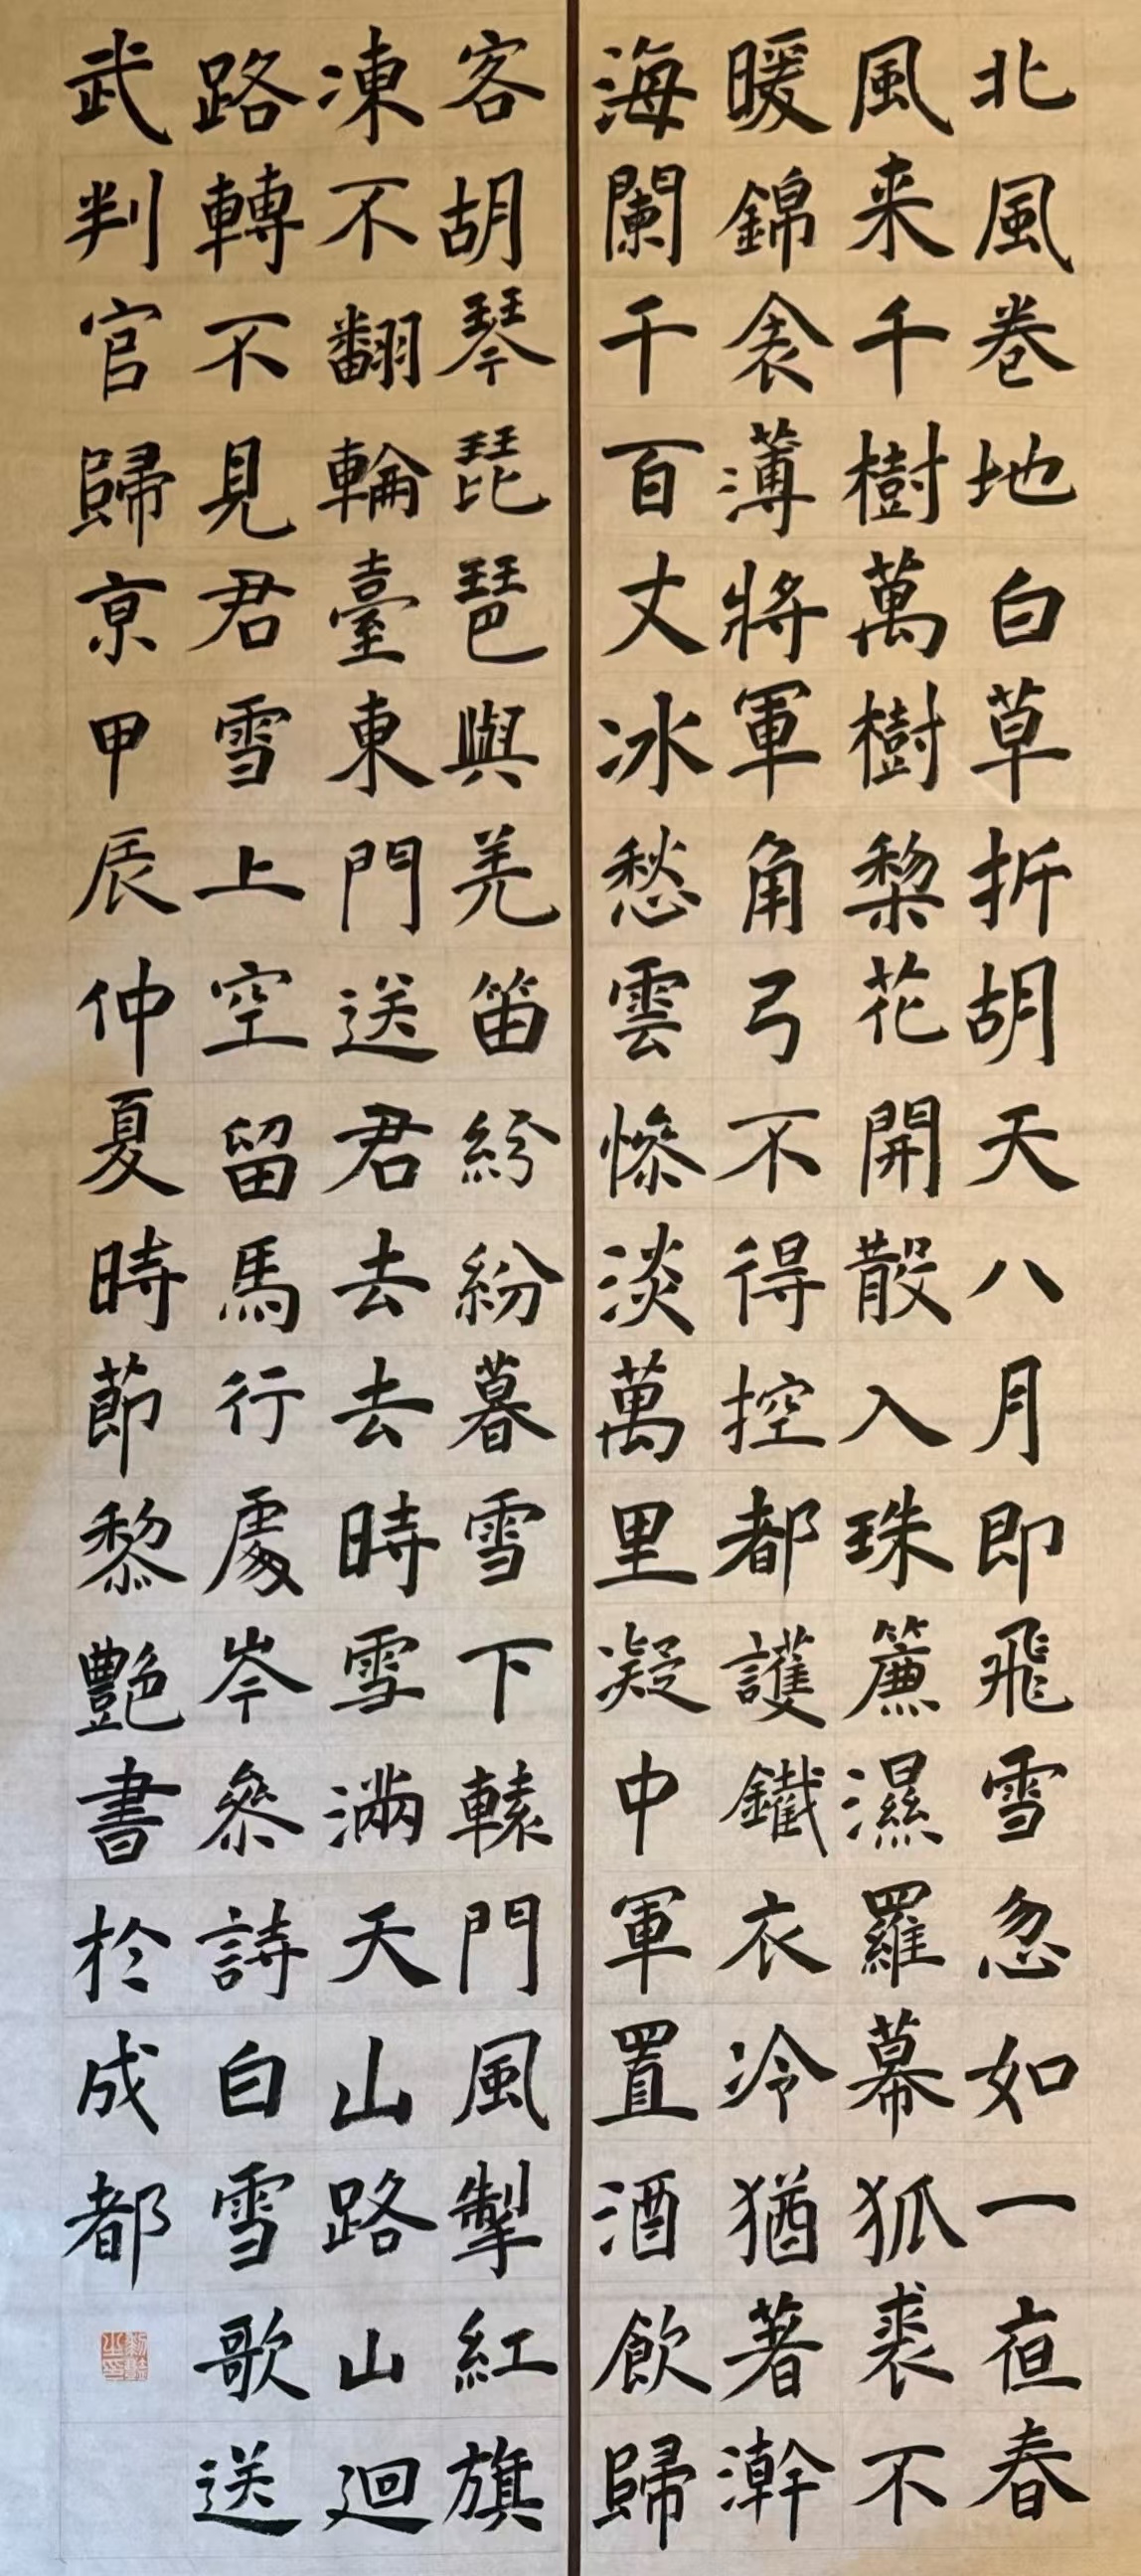 北風卷地白草折胡天八月即飛雪忽如一夜春
風来千樹萬樹棃花開散入珠簾濕羅幕狐裘不
暖錦衾薄將軍角弓不得控都護鐵衣冷猶著瀚
海闌干百丈冰愁雲慘淡萬里凝中軍置酒飲歸
客胡琴琵琶與羌笛紛紛暮雪下轅門風掣紅旗
凍不翻輪臺東門送君去去時雪滿天山路山迴
路轉不見君雪上空留馬行處岑參詩白雪歌送
武判官歸京甲辰仲夏時節黎艷書於成都